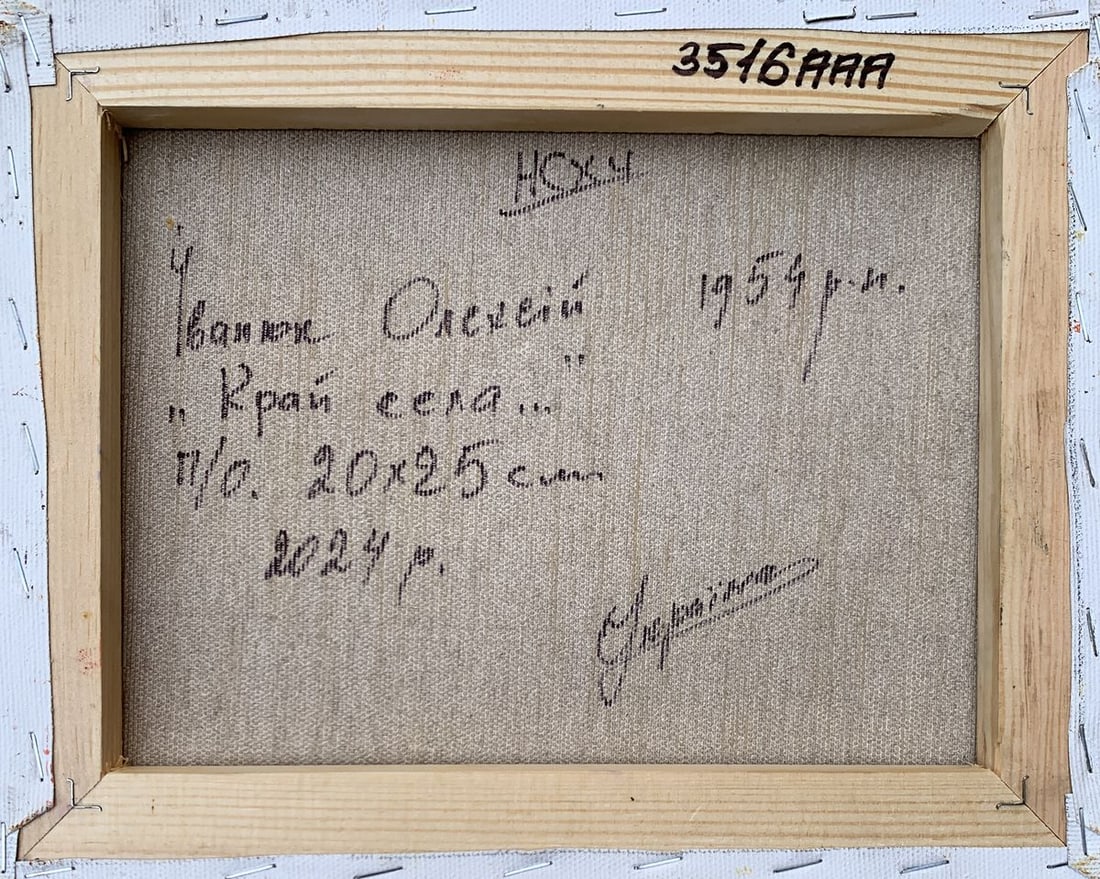 3516AAA
НСХУ
Іванюк Олексій 1954 р.н.
„Край села..."
п/о. 20х25 см
2024 р.
Україна